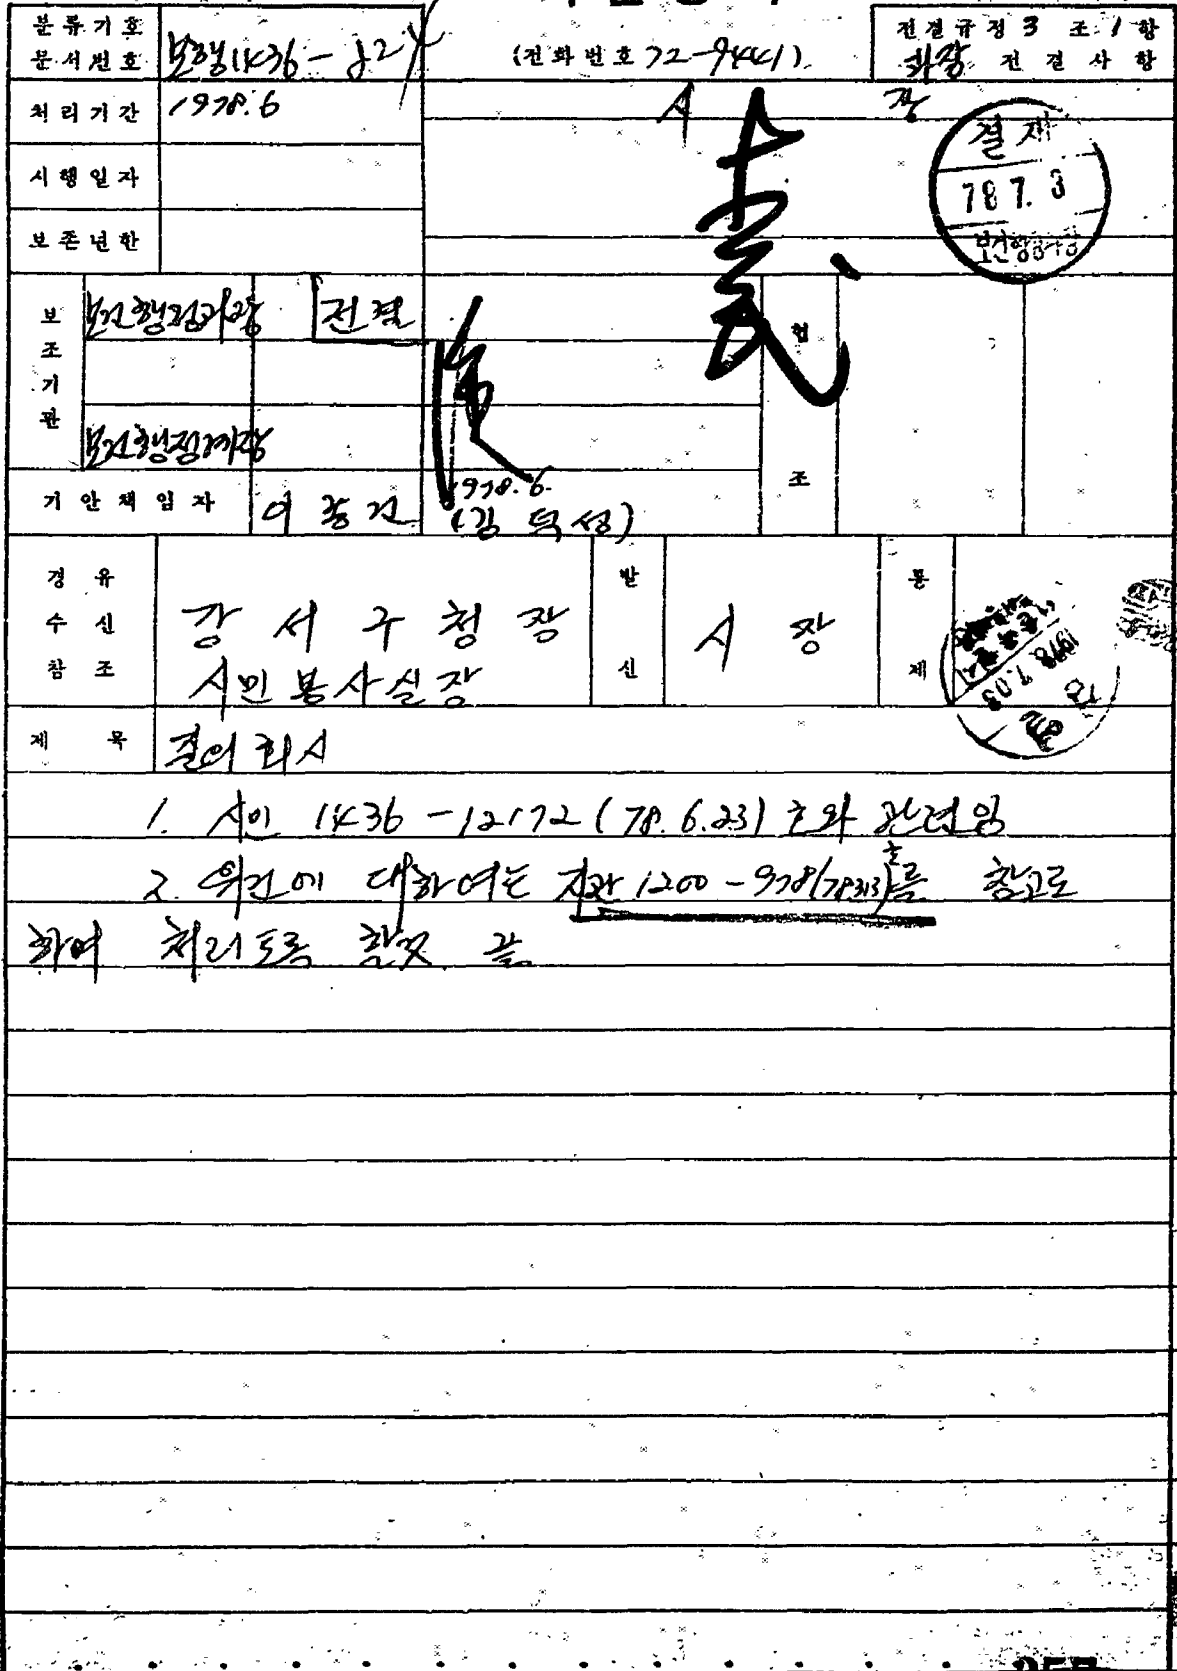 분류기호 문서번호 보행1436-
(전화번호 72-9441)
전결규정 3 조 1 항
과장 전결사항
처리기간 1978.6
시 장
결재
78 7. 3
시행일자
보존년한
보조기관
보건행정과장 전결
보건행정계장
협조
기안책임자 이종건
1978. 6.
(김덕성)
경유
수신 강서구청장
참조 시민봉사실장
발신 시장
통제
1978. 7. 03
제목 질의 회시
1. 시민 1436-12172 (78. 6. 23) 호와 관련임
2. 위건에 대하여는 지관 1200-978(78.3.13)호를 참고로
하여 처리토록 할것. 끝.